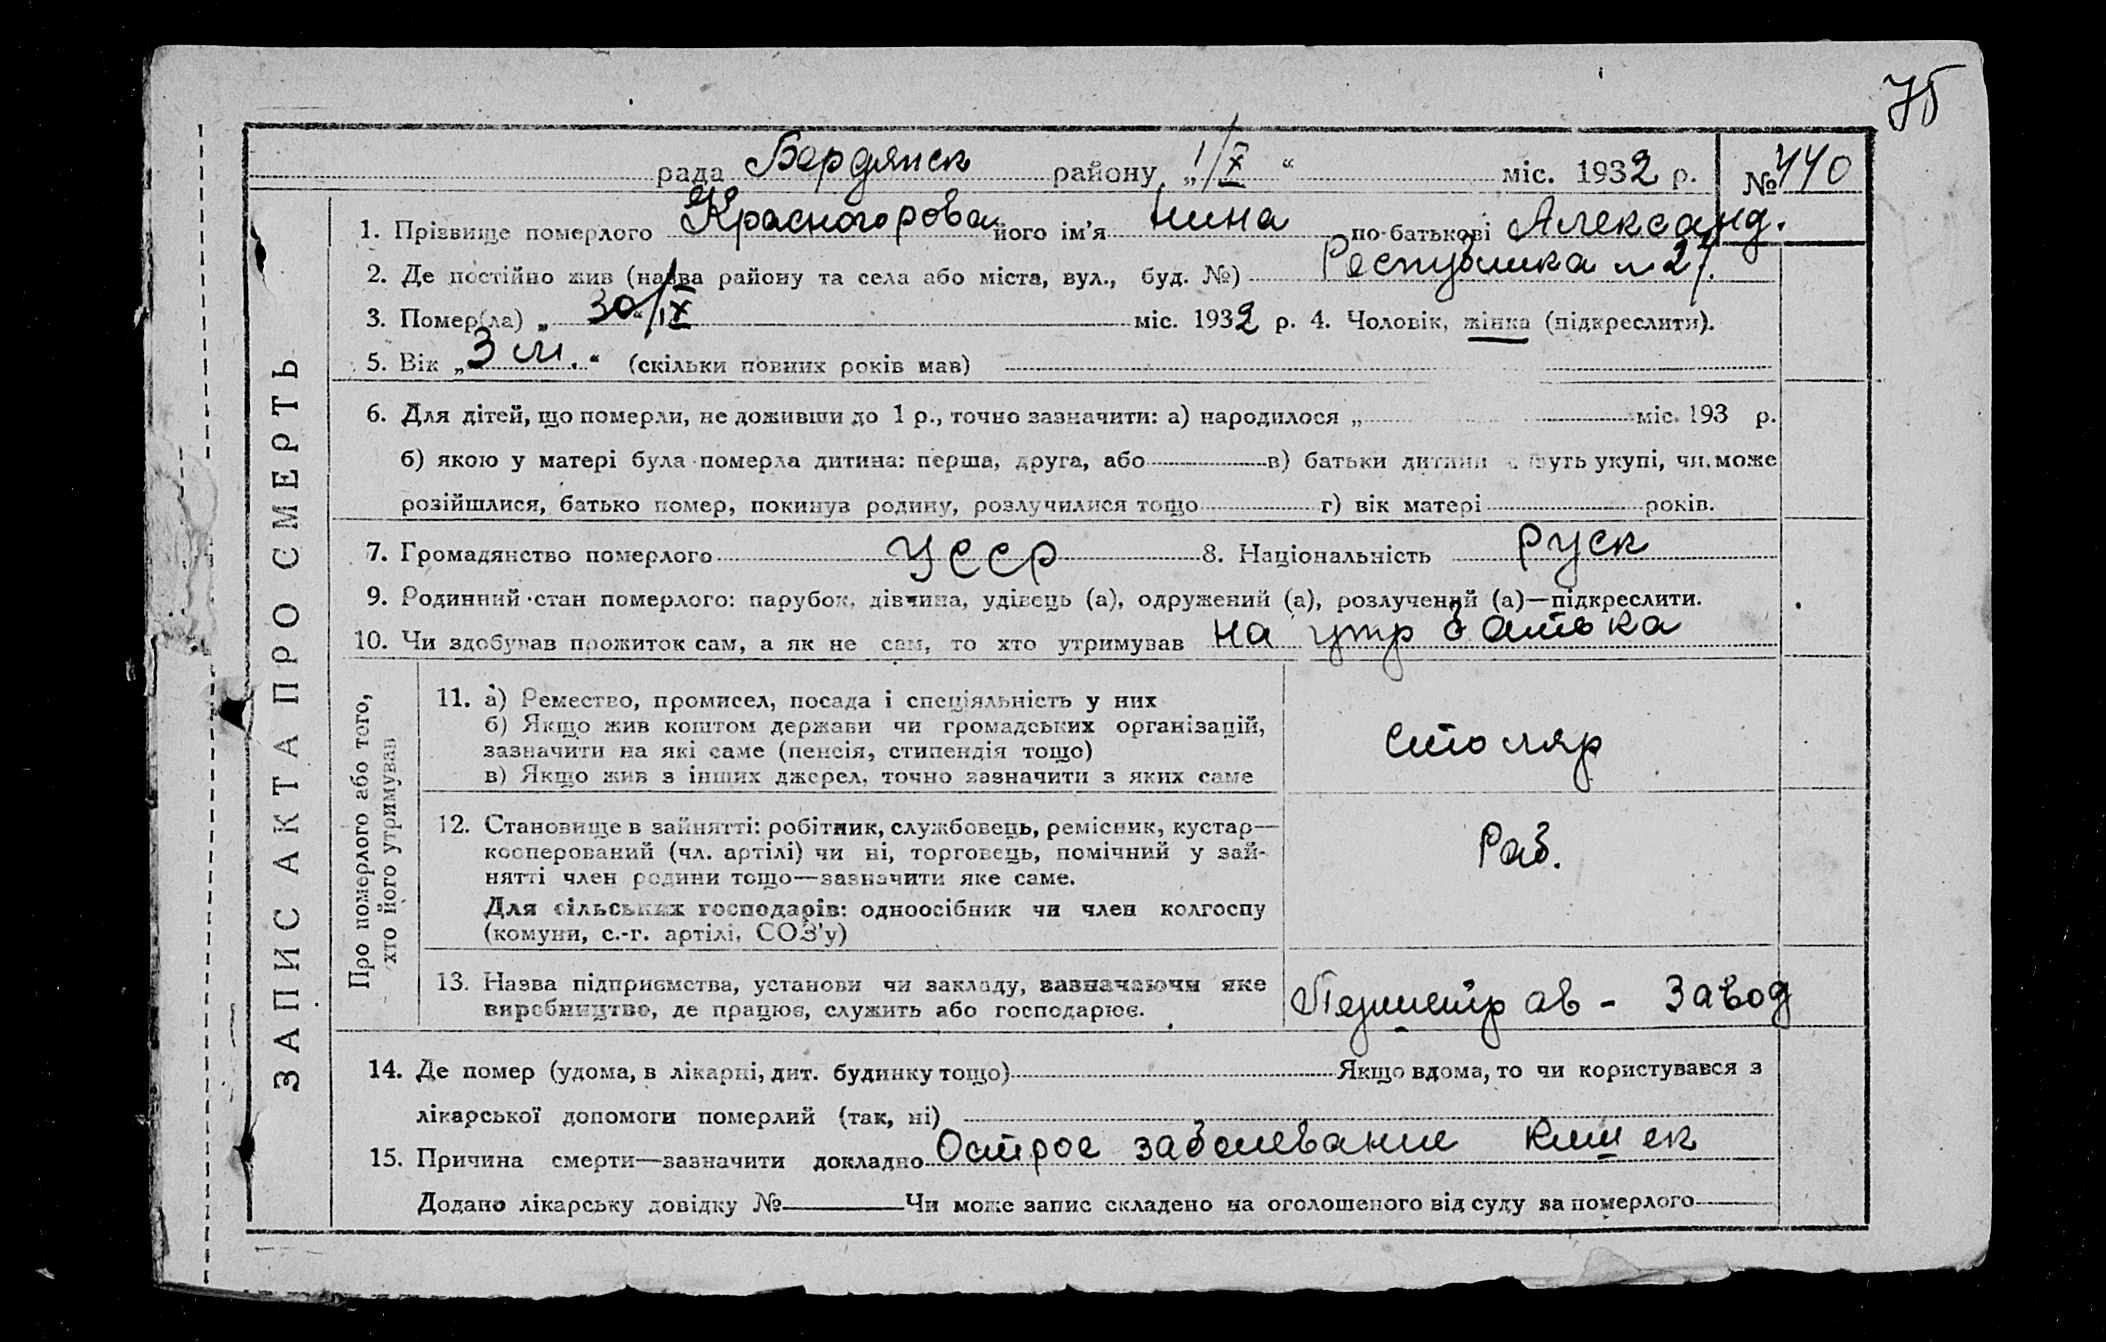 75
рада Бердянск району „1/X“ міс. 1932 р. № 440
1. Прізвище померлого Красногорова його ім’я Нина по-батькові Александ.
2. Де постійно жив (назва району та села або міста, вул., буд. №) Республика 27.
3. Помер(ла) „30“/IX міс. 1932 р. 4. Чоловік, жінка (підкреслити).
5. Вік „3 м.“ (скільки повних років мав)
6. Для дітей, що померли, не доживши до 1 р., точно зазначити: а) народилося „ міс. 193 р.
б) якою у матері була померла дитина: перша, друга, або в) батьки дитини укупі, чи може
розійшлися, батько помер, покинув родину, розлучилися тощо г) вік матері років.
7. Громадянство померлого УССР 8. Національність руск
9. Родинний стан померлого: парубок, дівчина, удівець (а), одружений (а), розлучений (а)—підкреслити.
10. Чи здобував прожиток сам, а як не сам, то хто утримував на утр батька
ЗАПИС АКТА ПРО СМЕРТЬ
Про померлого або того,
хто його утримував
11. а) Ремество, промисел, посада і спеціяльність у них
б) Якщо жив коштом держави чи громадських організацій,
зазначити на які саме (пенсія, стипендія тощо)
в) Якщо жив з інших джерел, точно зазначити з яких саме
столяр
12. Становище в зайнятті: робітник, службовець, ремісник, кустар—
кооперований (чл. артілі) чи ні, торговець, помічний у зай-
нятті член родини тощо—зазначити яке саме.
Для сільських господарів: одноосібник чи член колгоспу
(комуни, с.-г. артілі, СОЗ’у)
Раб.
13. Назва підприємства, установи чи закладу, зазначаючи яке
виробництво, де працює, служить або господарює.
завод
14. Де помер (удома, в лікарні, дит. будинку тощо) Якщо вдома, то чи користувався з
лікарської допомоги померлий (так, ні)
15. Причина смерти—зазначити докладно Острое заболевание кишек
Додано лікарську довідку № Чи може запис складено на оголошеного від суду за померлого